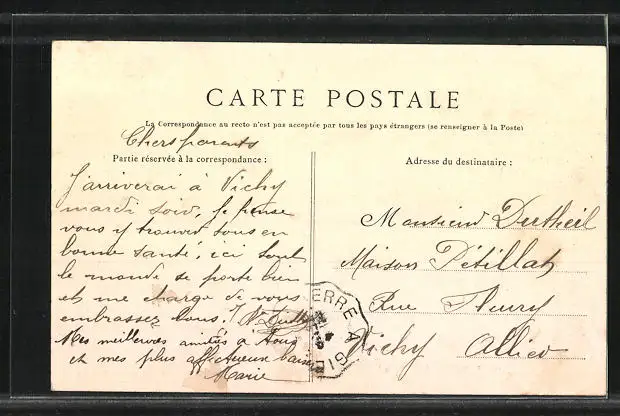 CARTE POSTALE
La Correspondance au recto n'est pas acceptée par tous les pays étrangers (se renseigner à la Poste)
Chers parents
Partie réservée à la correspondance :
J'arriverai à Vichy
mardi soir, je pense
vous y trouver tous en
bonne santé, ici tout
le monde se porte bien
et me charge de vous
embrassez tous.
Mes meilleures amitiés a tous
et mes plus affectueux baisers
Marie
Adresse du destinataire :
Monsieur Dertheil
Maison Pétillat
Rue Fleury
Vichy Allier
ERRE A GI